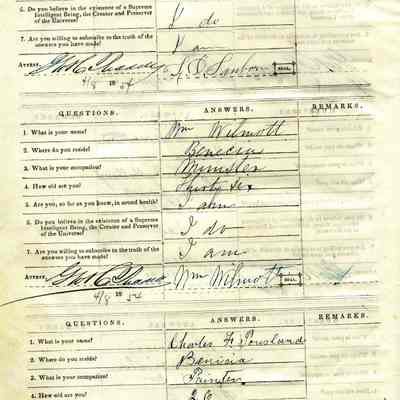 6. Do you believe in the existence of a Supreme Intelligent Being, the Creator and Preserver of the Universe? I do
7. Are you willing to subscribe to the truth of the answers you have made? I am
ATTEST, 4/8 1854 Sanborn SEAL
QUESTIONS. ANSWERS. REMARKS.
1. What is your name? Wm Wilmott
2. Where do you reside? Benecia
3. What is your occupation? Minister
4. How old are you? Thirty Six
5. Are you, so far as you know, in sound health? I am
6. Do you believe in the existence of a Supreme Intelligent Being, the Creator and Preserver of the Universe? I do
7. Are you willing to subscribe to the truth of the answers you have made? I am
ATTEST, 4/8 1854 Wm Wilmott SEAL
QUESTIONS. ANSWERS. REMARKS.
1. What is your name? Charles
2. Where do you reside? Benicia
3. What is your occupation? Painter
4. How old are you? 26